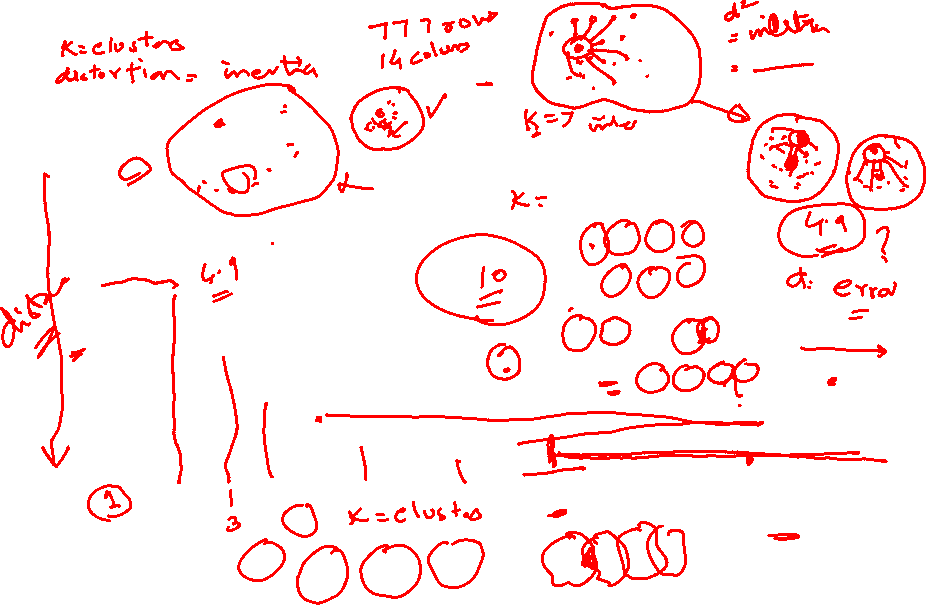 K = clusters
distortion = inertia
777 rows
14 colums
d² = inertia
K = 7
K =
4.9
4.9 ?
10
d: error
1
3
K = clusters